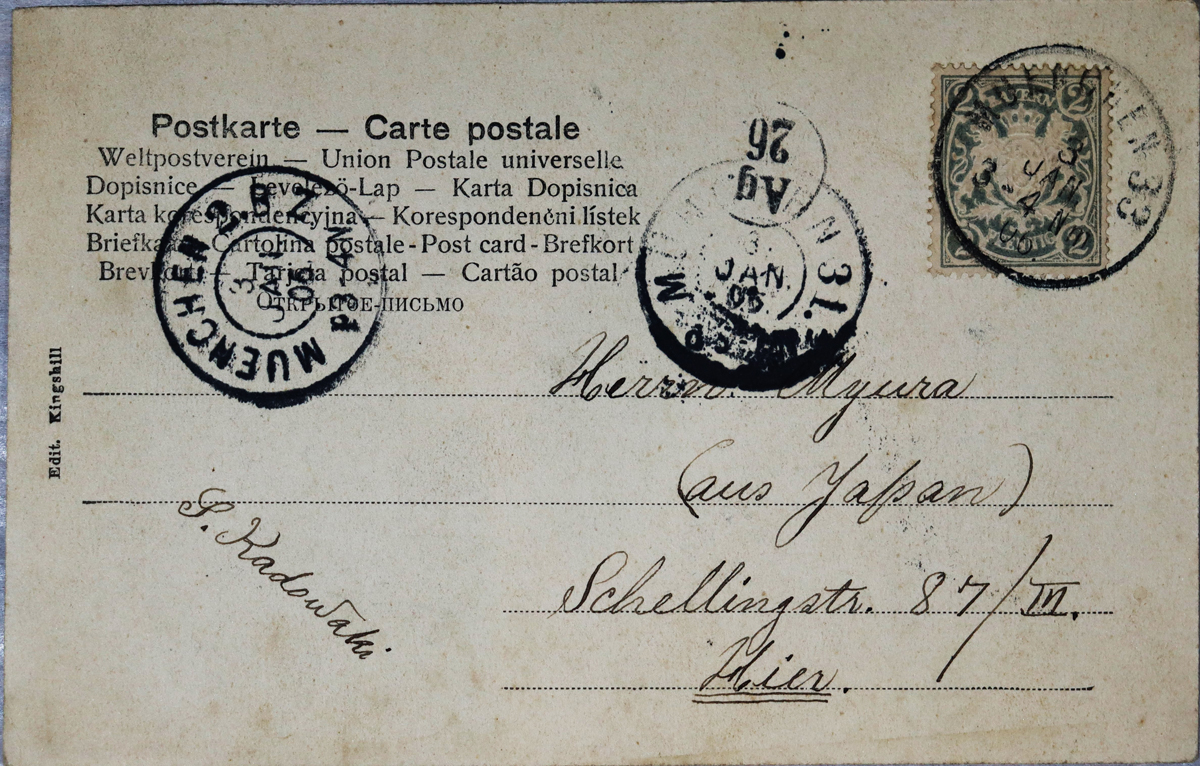 Postkarte — Carte postale
Weltpostverein — Union Postale universelle
Dopisnice — Levelező-Lap — Karta Dopisnica
Karta korespondencyjna — Korespondenční lístek
Cartolina postale - Post card - Brefkort
postal — Cartão postal
ОТКРЫТОЕ-ПИСЬМО
Edit. Kingshill
MUENCHEN 2 B.Z.
3
JAN
06
3-4N
26
Ag.
31.
3.
JAN.
06
MUENCHEN 33
3
JAN.
3-4 N
06.
2
2
2
Herrn. Myura
(aus Japan)
Schellingstr. 87/III.
Hier.
S. Kadowaki